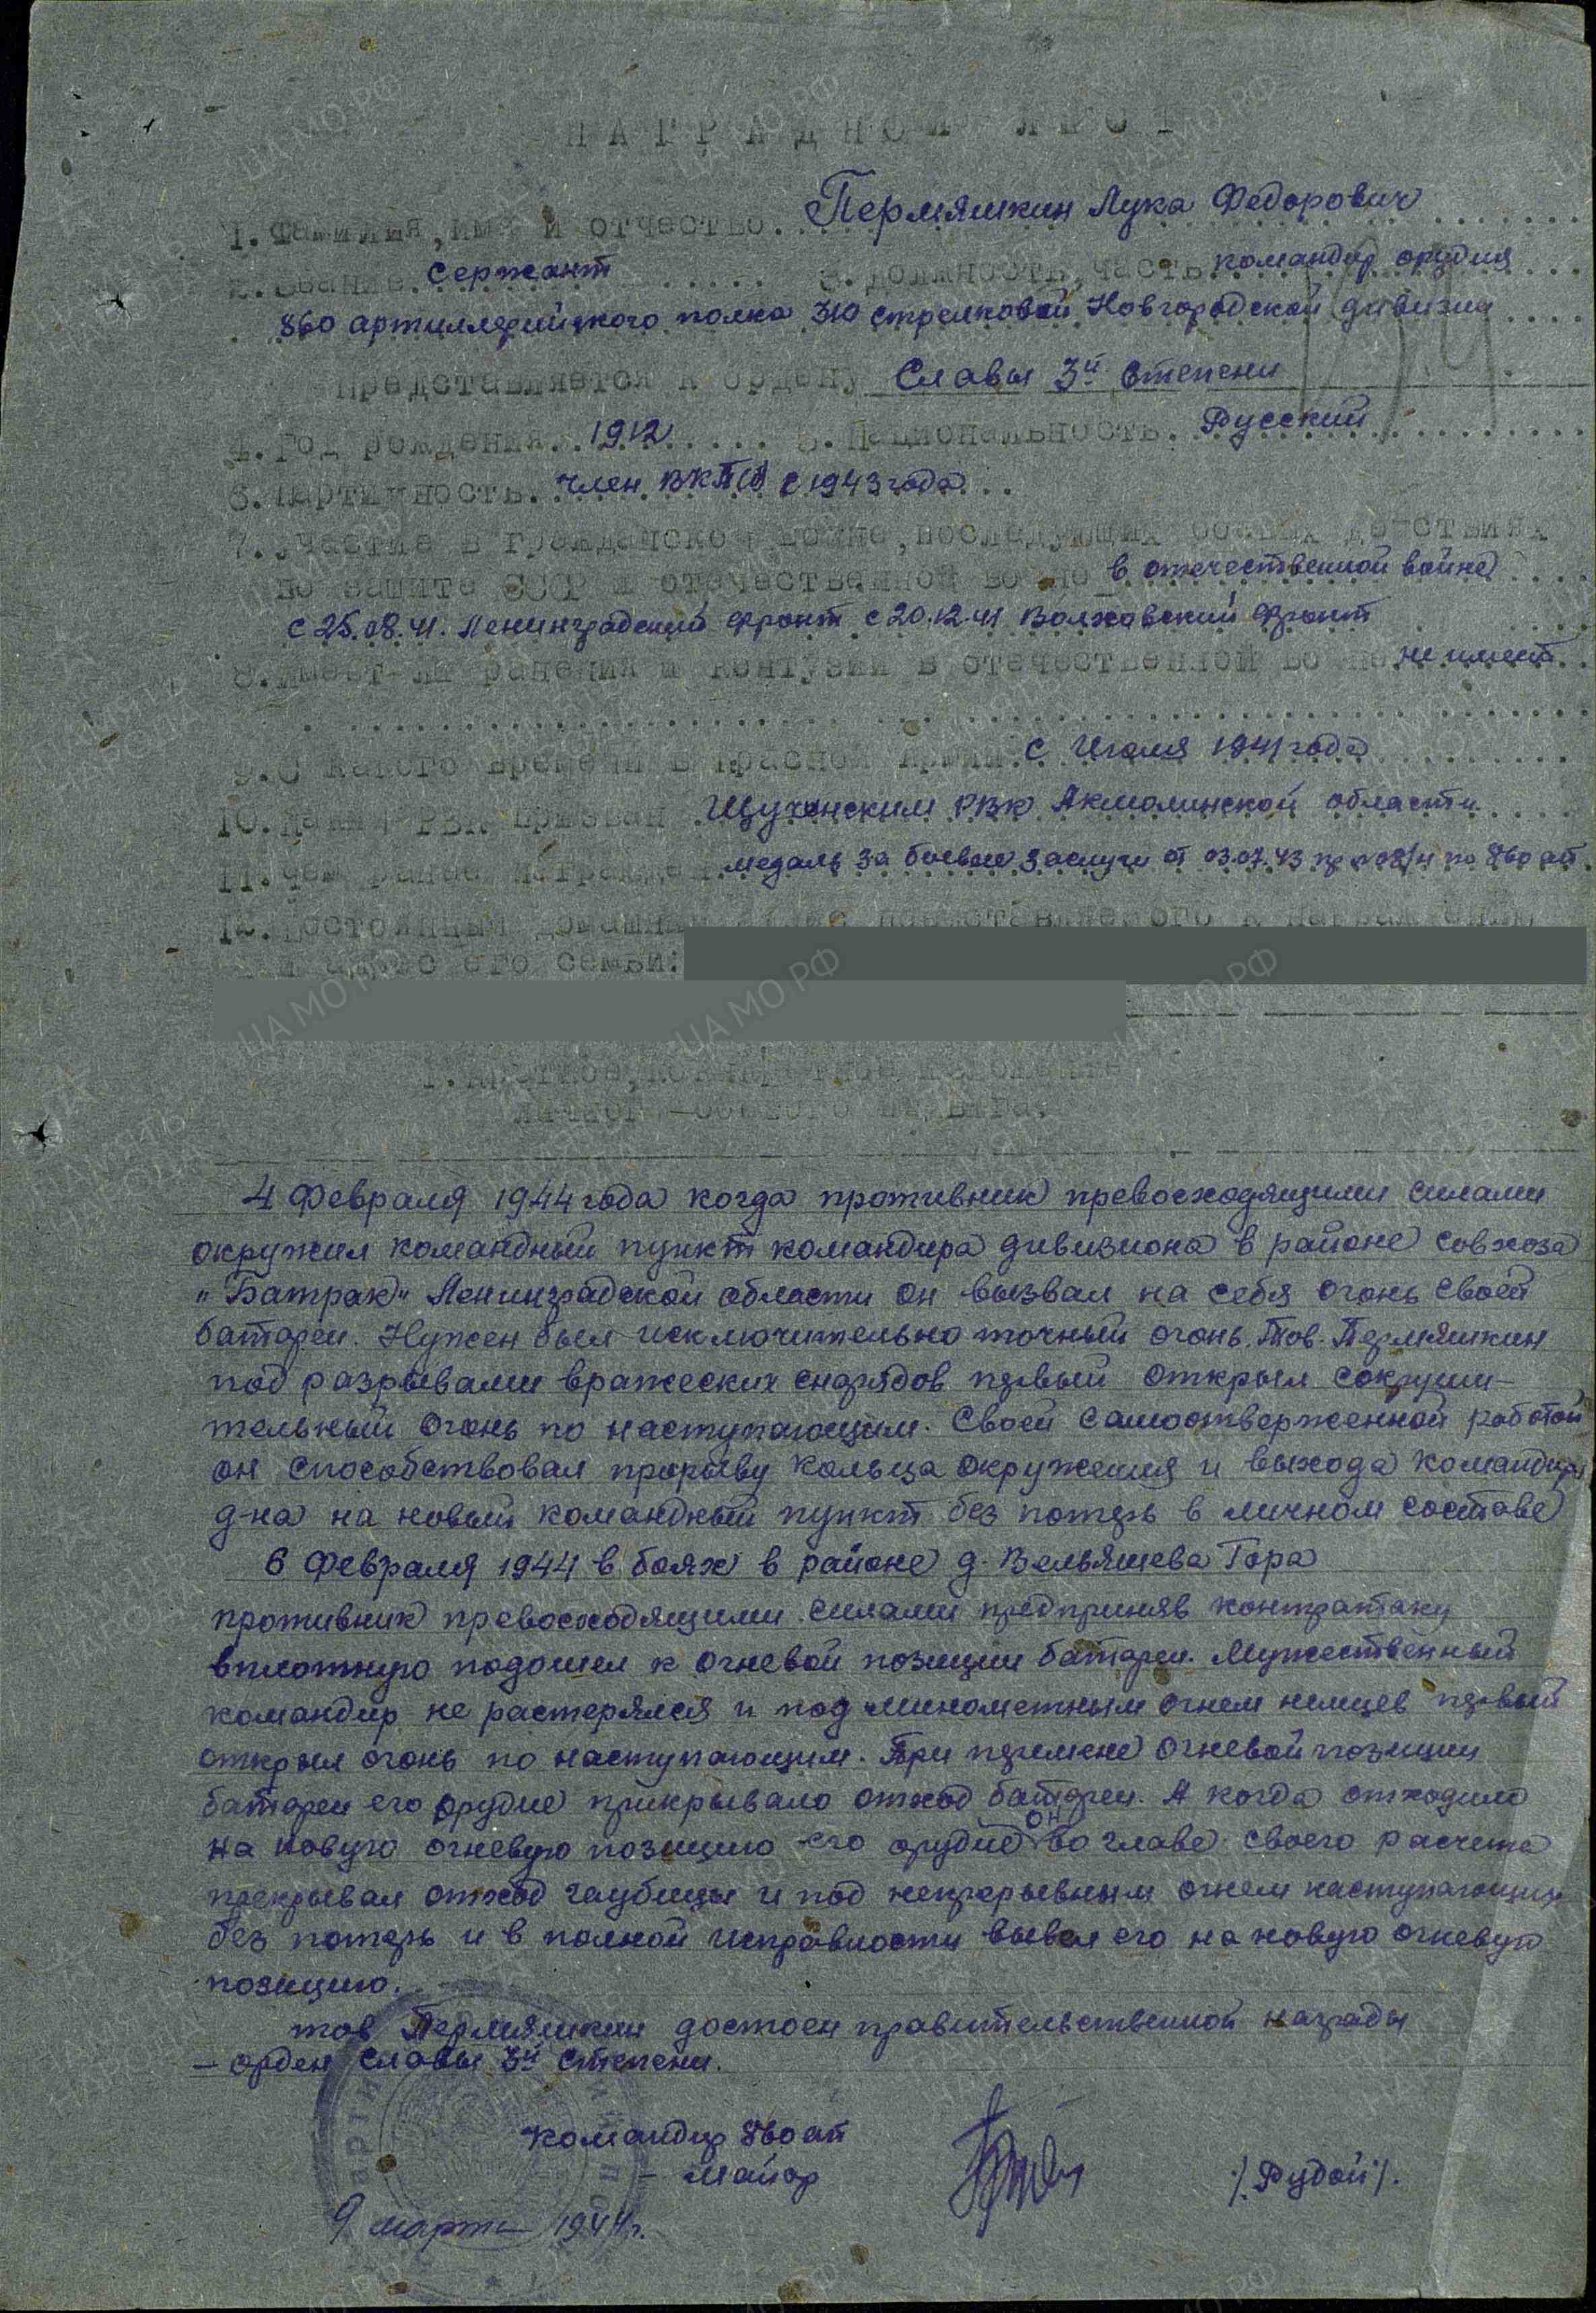 НАГРАДНОЙ ЛИСТ
1. Фамилия, имя и отчество. Пермяшкин Лука Федорович
2. Звание. Сержант 3. Должность, часть. командир орудия
860 артиллерийского полка 310 стрелковой Новгородской дивизии
Представляется к ордену Славы 3й степени
4. Год рождения. 1912 5. Национальность. Русский
6. Партийность. член ВКП(б) с 1943 года
7. Участие в гражданской войне, последующих боевых действиях
по защите СССР и отечественной войне в отечественной войне
с 25.08.41. Ленинградский фронт с 20.12.41 Волховский фронт
8. Имеет ли ранения и контузии в отечественной войне не имеет
9. С какого времени в Красной Армии с Июля 1941 года
10. Каким РВК призван Щучинским РВК Акмолинской области
11. Чем ранее награжден. медаль за боевые заслуги от 03.07.43 пр. № 08/н по 860 ап
12. Постоянный домашний адрес представляемого к награждению
и адрес его семьи:
1. Краткое, конкретное изложение
личного боевого подвига.
4 Февраля 1944 года когда противник превосходящими силами
окружил командный пункт командира дивизиона в районе совхоза
"Батрак" Ленинградской области он вызвал на себя огонь своей
батареи. Нужен был исключительно точный огонь. Тов. Пермяшкин
под разрывами вражеских снарядов первый открыл сокруши-
тельный огонь по наступающим. Своей самоотверженной работой
он способствовал прорыву кольца окружения и выхода командира
д-на на новый командный пункт без потерь в личном составе
6 Февраля 1944 в боях в районе д. Вельяшева Гора
противник превосходящими силами предприняв контратаку
вплотную подошел к огневой позиции батареи. Мужественный
командир не растерялся и под минометным огнем немцев первый
открыл огонь по наступающим. При перемене огневой позиции
батареи его орудие прикрывало отход батареи. А когда отходило
на новую огневую позицию его орудие он во главе своего расчета
прекрывал отход гаубицы и под непрерывным огнем наступающих
без потерь и в полной исправности вывел его на новую огневую
позицию.
тов Пермяшкин достоен правительственной награды
– орден славы 3й степени.
Командир 860 ап
– майор /. Рудой /.
9 марта 1944 г.